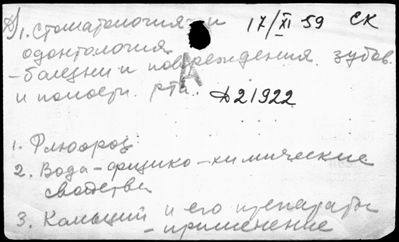 1. Стоматология и 17/XI 59 СК
одонтология
- болезни и повреждения зубов
и полости рта. Д21922
1. Флюороз
2. Вода - физико-химические
свойства
3. Кальций и его препараты
- применение